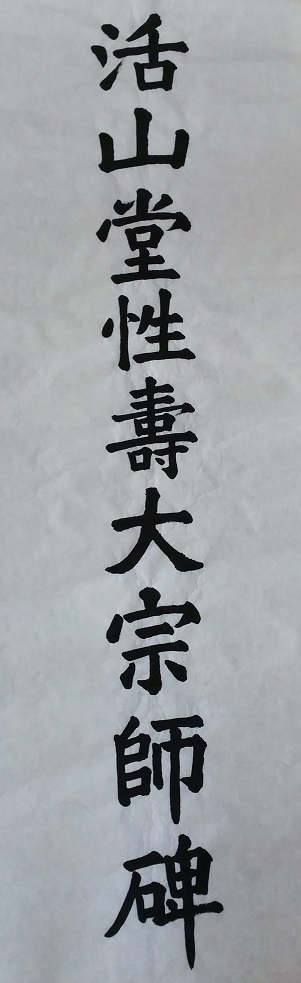 活山堂性壽大宗師碑